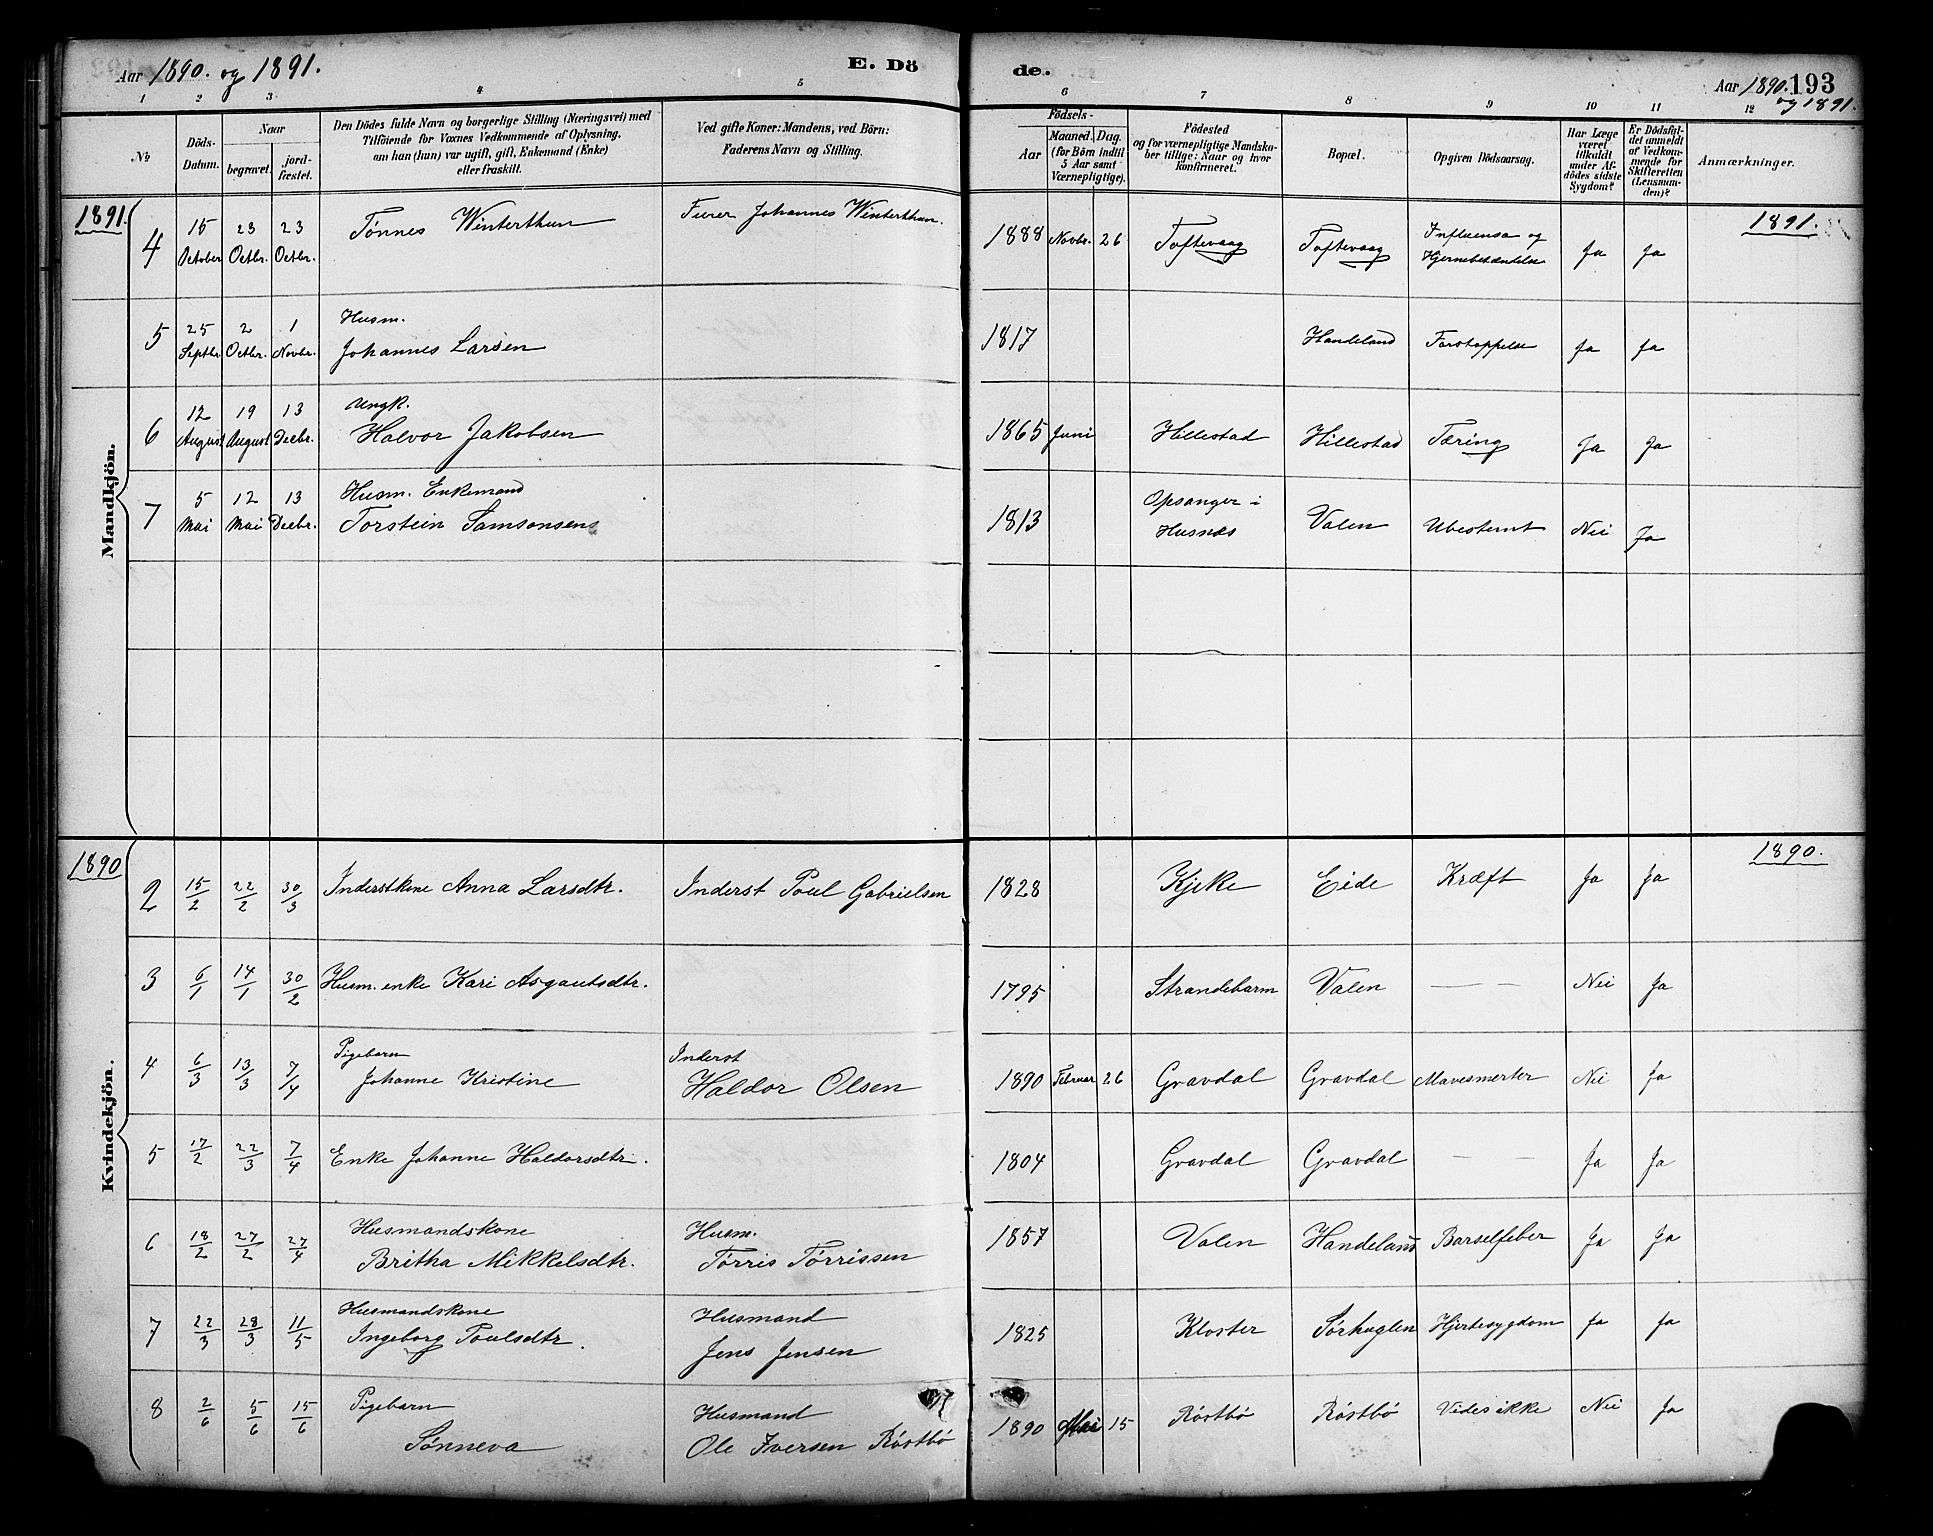 Aar 1890. og 1891.
E. Dö
de.
Aar 1890. 193
og 1891.
1 2 3 4 5 6 7 8 9 10 11 12
No
Döds-Datum.
Naar
begravet.
jord-fæstet.
Den Dödes fulde Navn og borgerlige Stilling (Næringsvei) med
Tilföiende for Voxnes Vedkommende af Oplysning,
om han (hun) var ugift, gift, Enkemand (Enke)
eller fraskilt.
Ved gifte Koner: Mandens, ved Börn:
Faderens Navn og Stilling.
Födsels-
Aar
Maaned. Dag.
(for Börn indtil
5 Aar samt
Værnepligtige).
Födested
og for værnepligtige Mandska-
ber tillige: Naar og hvor
konfirmeret.
Bopæl.
Opgiven Dödsaarsag.
Har Læge
været
tilkaldt
under Af-
dödes sidste
Sygdom?
Er Dödsfal-
det anmeldt
af Vedkom-
mende for
Skifteretten
(Lensman-
den)?
Anmærkninger.
Mandkjön.
1891.
4 15 October 23 Octbr. 23 Octbr. Tønnes Winterthun Furer Johannes Winterthun. 1888 Novbr. 26 Toftevaag Toftevaag Influensa og Hjernebetændelse Ja Ja 1891.
5 25 Septbr 2 Octbr. 1 Novbr. Husm. Johannes Larsen 1817 Handeland Forstoppelse Ja Ja
6 12 August 19 August 13 Decbr. Ungk. Halvor Jakobsen 1865 Juni Hillestad Hillestad Tæring Ja Ja
7 5 Mai 12 Mai 13 Decbr. Husm. Enkemand Torstein Samsonsens 1813 Opsanger i Husnæs Valen Ubestemt Nei Ja
Kvindekjön.
1890
1890.
2 15/2 22/2 30/3 Inderstkone Anna Larsdtr. Inderst Poul Gabrielsen 1828 Kjeke Eide Kræft Ja Ja
3 6/1 14/1 30/2 Husm. enke Kari Asgautsdtr. 1795 Strandebarm Valen — — Nei Ja
4 6/3 13/3 7/4 Pigebarn Johanne Kristine Inderst Haldor Olsen 1890 Februar 26 Gravdal Gravdal Mavesmerter Nei Ja
5 17/2 22/3 7/4 Enke Johanne Haldorsdtr. 1804 Gravdal Gravdal — — Ja Ja
6 18/2 27/2 27/4 Husmandskone Britha Mikkelsdtr. Husm. Tørris Tørrissen 1857 Valen Handeland Barselfeber Ja Ja
7 22/3 28/3 11/5 Husmandskone Ingeborg Poulsdtr. Husmand Jens Jensen 1825 Kloster Sørhuglen Hjertesygdom Ja Ja
8 2/6 5/6 15/6 Pigebarn Sønneva Husmand Ole Iversen Röstbö 1890 Mai 15 Röstbö Röstbö Vides ikke Nei Ja